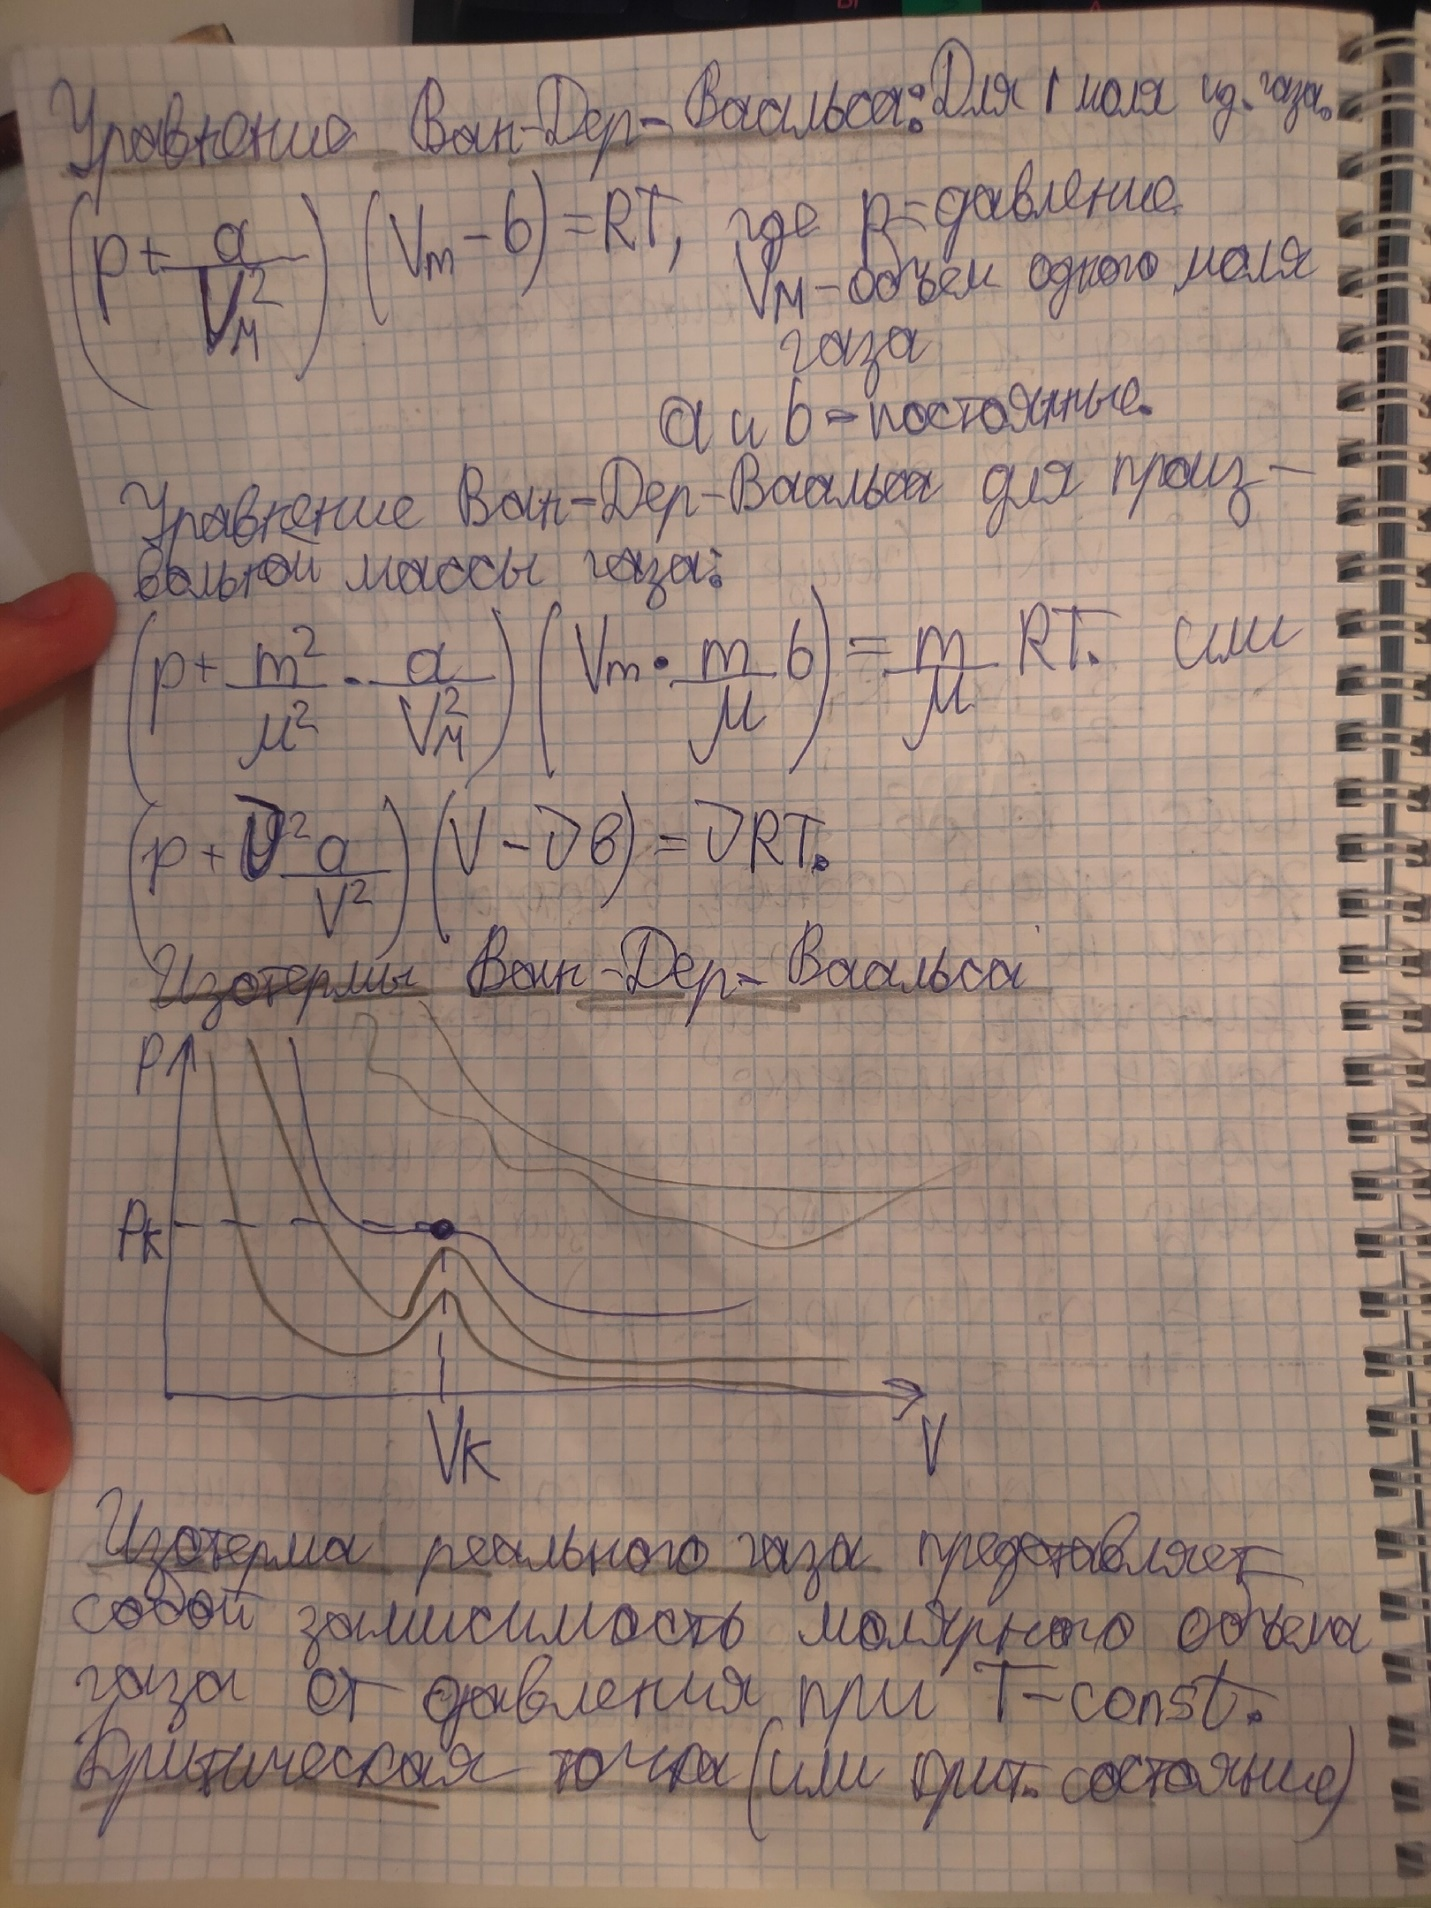 Уравнение Ван-Дер-Ваальса: Для 1 моля ид. газа.
(p + a/Vм²) (Vm - b) = RT, где p = давление
Vм - объем одного моля
газа
a и b - постоянные.
Уравнение Ван-Дер-Ваальса для произ-
вольной массы газа:
(p + m²/μ² · a/Vм²) (Vm · m/μ b) = m/μ RT. или
(p + ν²a/V²) (V - νb) = νRT.
Изотермы Ван-Дер-Ваальса
P
Pк
Vк
V
Изотерма реального газа представляет
собой зависимость молярного объема
газа от давления при T-const.
Критическая точка (или крит. состояние)